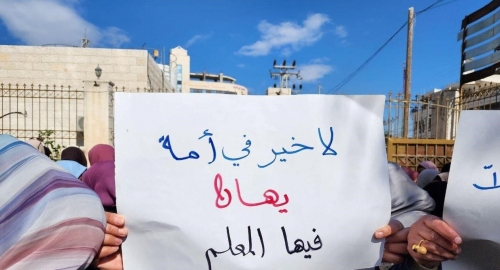 لا خير في أمة
يهان
فيها المعلم